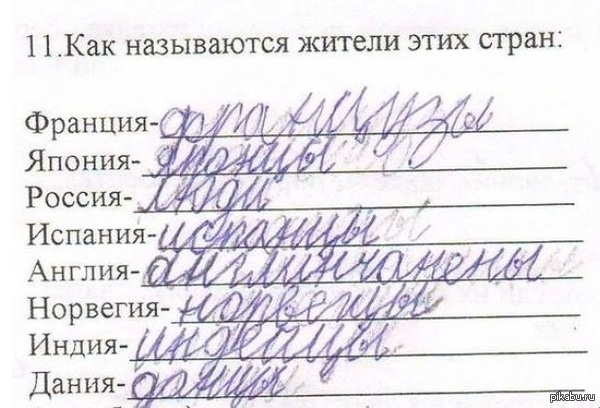 11.Как называются жители этих стран:
Франция-французы
Япония-японцы
Россия-люди
Испания-испанцы
Англия-англинчанены
Норвегия-норвецы
Индия-индейцы
Дания-данцы
pikabu.ru